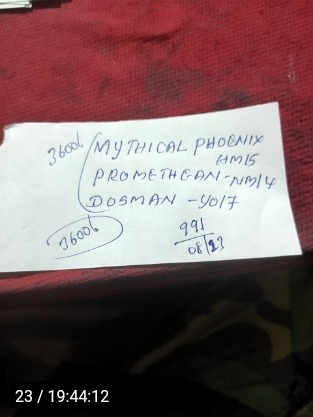 36006
MYTHICAL PHOENIX
HM/5
PROMETHEAN-NM/4
DOSMAN -YO/7
36006
991
08/23
23 / 19:44:12